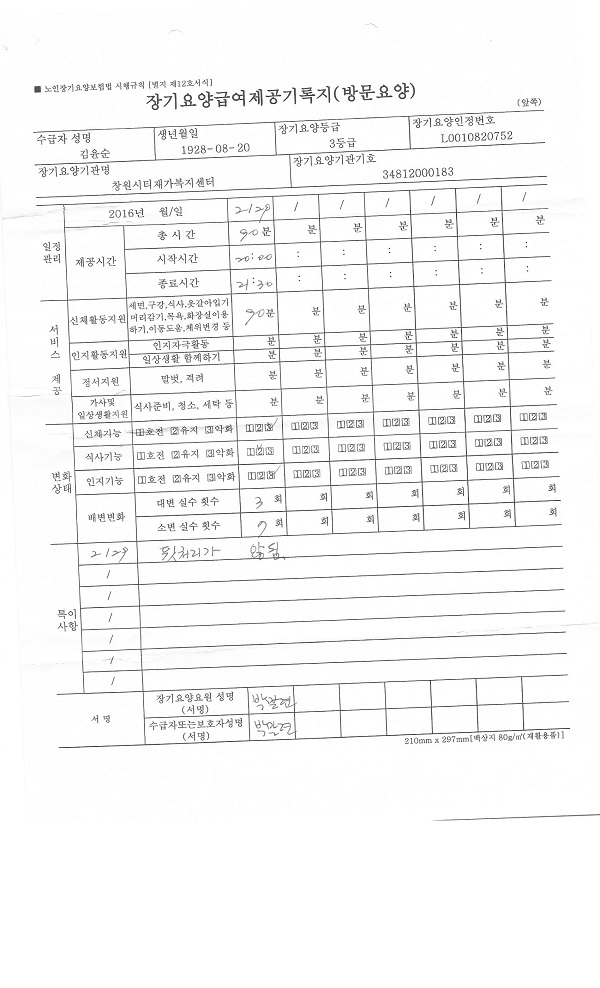 ■ 노인장기요양보험법 시행규칙 [별지 제12호서식]
장기요양급여제공기록지(방문요양)
(앞쪽)
수급자 성명 생년월일 장기요양등급 장기요양인정번호
김윤순 1928-08-20 3등급 L0010820752
장기요양기관명 장기요양기관기호
창원시티재가복지센터 34812000183
일정관리 2016년 월/일 2/29 / / / / / /
제공시간 총 시 간 90분 분 분 분 분 분 분
시작시간 20:00 : : : : : :
종료시간 21:30 : : : : : :
서비스 제공 신체활동지원 세면,구강,식사,옷갈아입기 90분 분 분 분 분 분 분
머리감기,목욕,화장실이용
하기,이동도움,체위변경 등
인지활동지원 인지자극활동 분 분 분 분 분 분 분
일상생활 함께하기 분 분 분 분 분 분 분
정서지원 말벗, 격려 분 분 분 분 분 분 분
가사및
일상생활지원 식사준비, 청소, 세탁 등 분 분 분 분 분 분 분
변화상태 신체기능 1호전 2유지 3악화 123 123 123 123 123 123 123
식사기능 1호전 2유지 3악화 123 123 123 123 123 123 123
인지기능 1호전 2유지 3악화 123 123 123 123 123 123 123
배변변화 대변 실수 횟수 3 회 회 회 회 회 회 회
소변 실수 횟수 7 회 회 회 회 회 회 회
특이사항 2/29 뒷처리가 안됨.
/
/
/
/
/
서 명 장기요양요원 성명
(서명)
수급자또는보호자성명
(서명)
210mm x 297mm[백상지 80g/㎡(재활용품)]